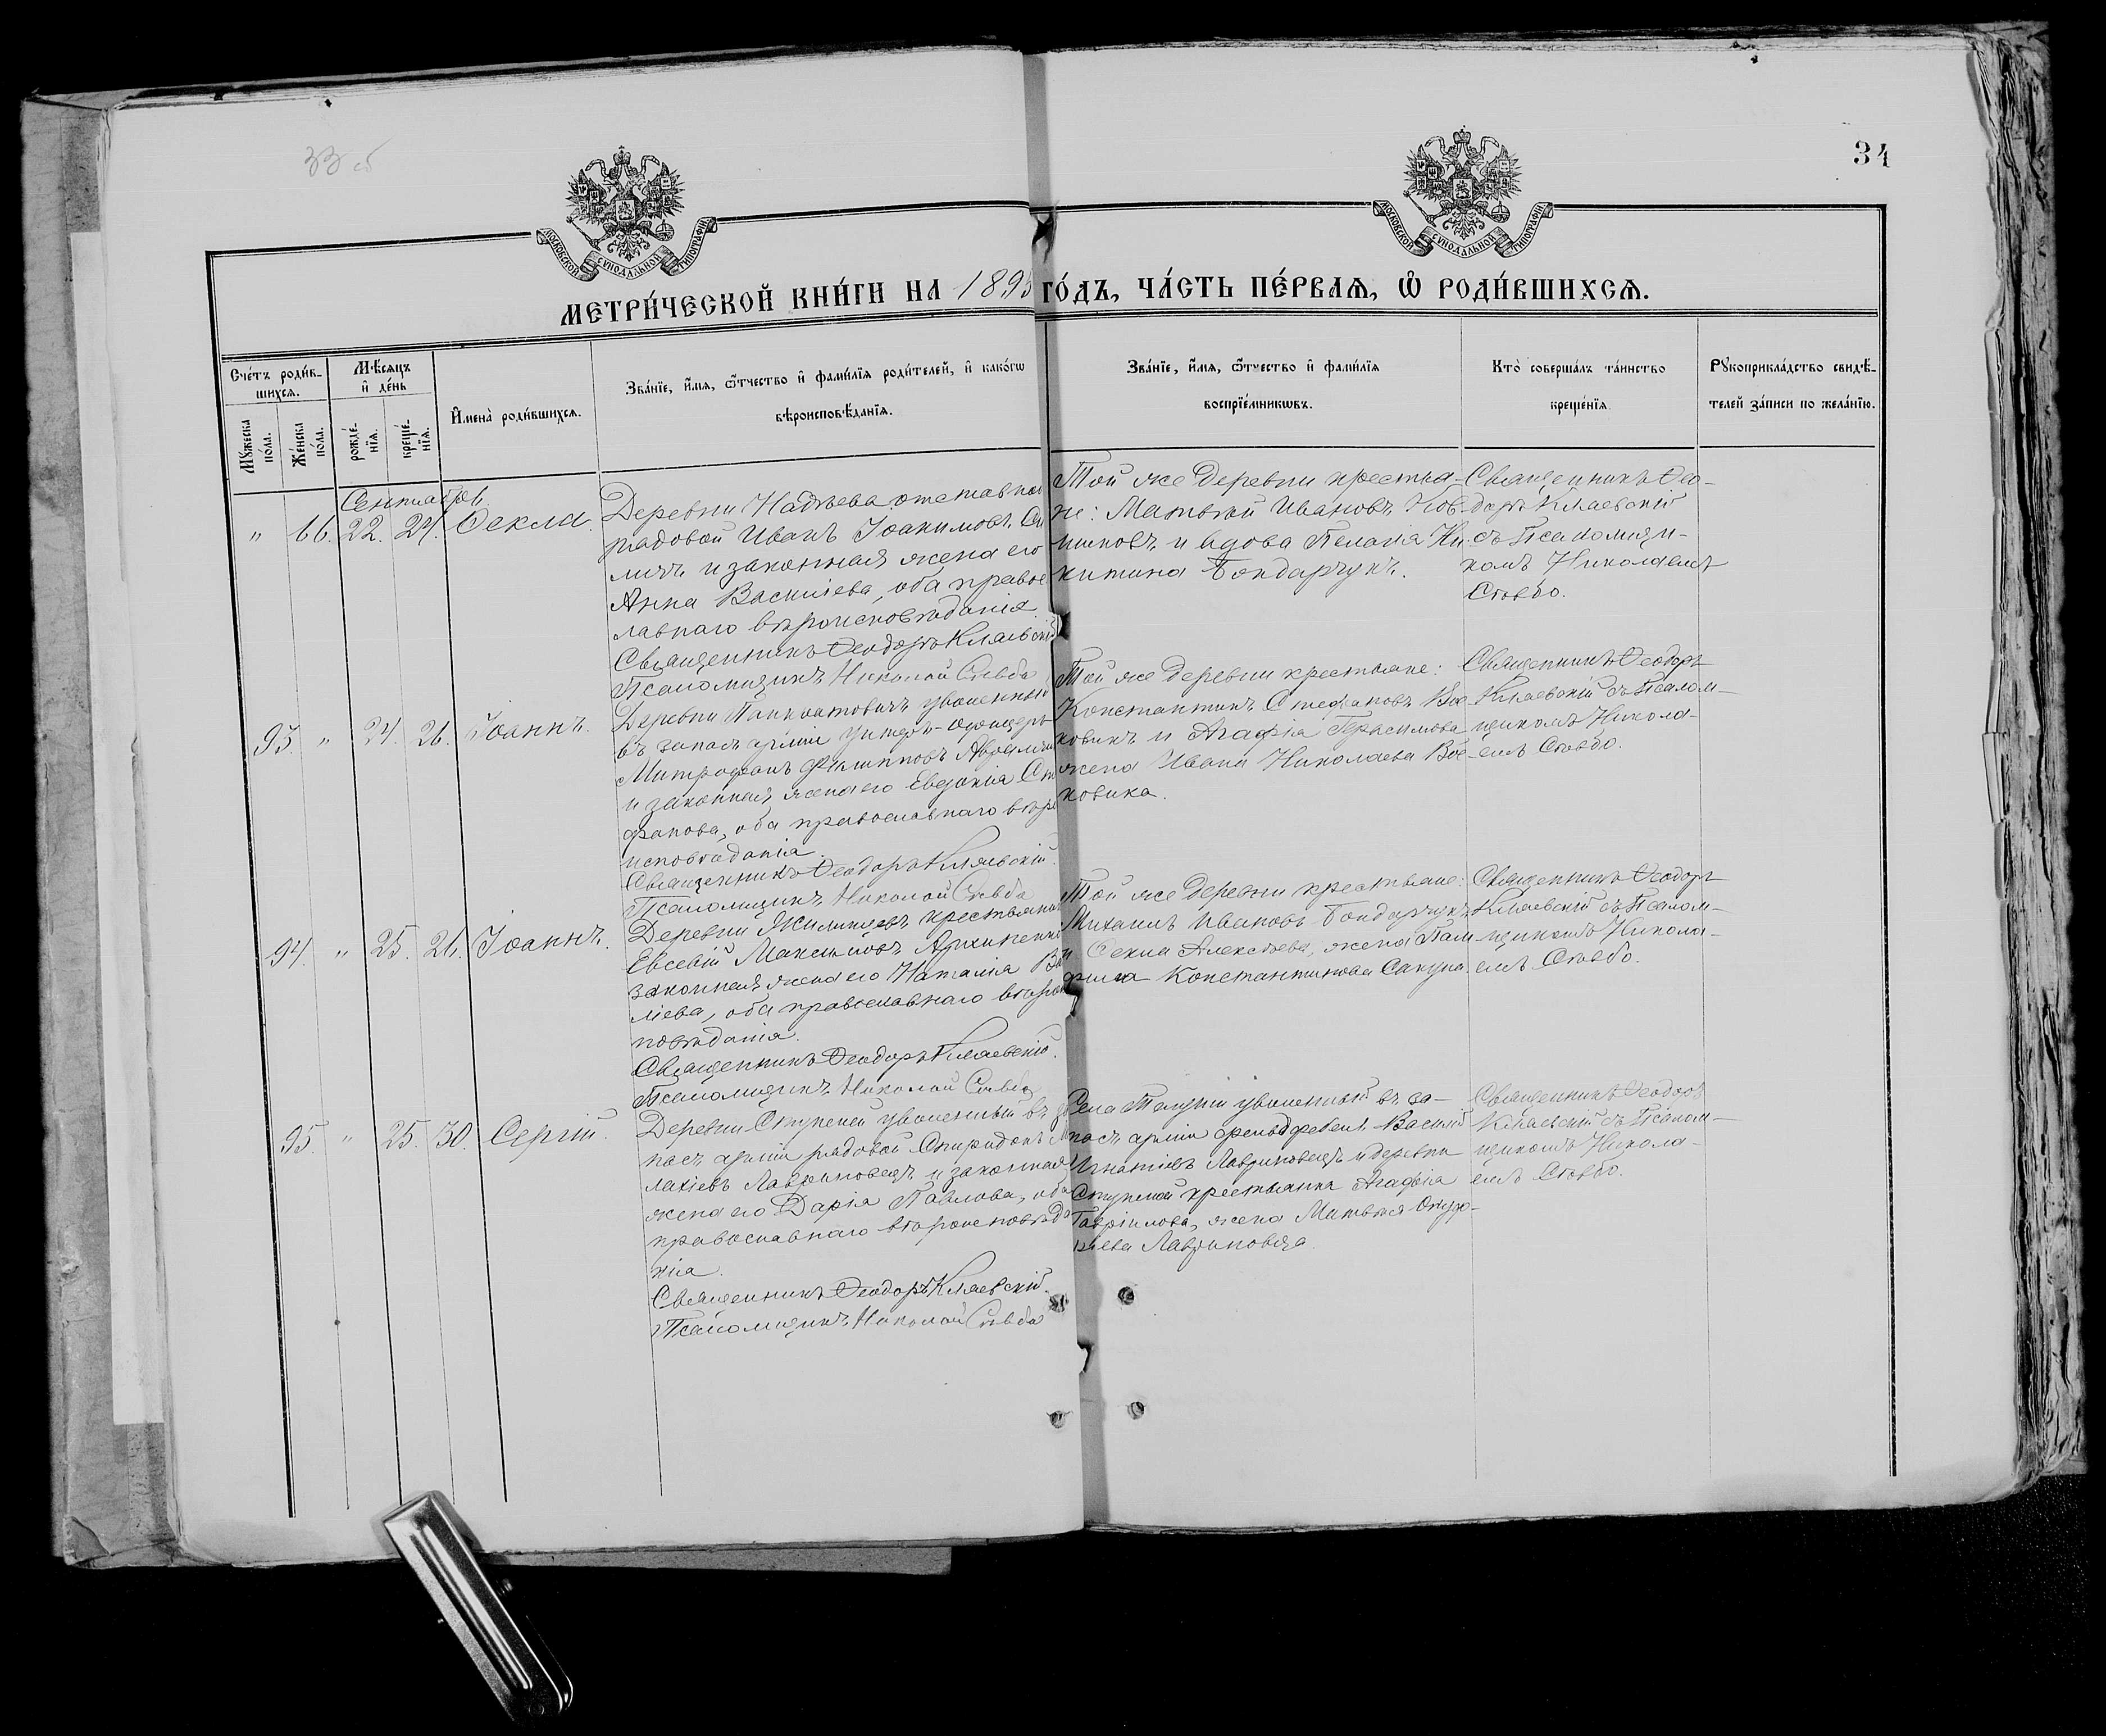 33 об
34
МОСКОВСКОЙ СѴНОДАЛЬНОЙ ТИПОГРАФІИ
МОСКОВСКОЙ СѴНОДАЛЬНОЙ ТИПОГРАФІИ
МЕТРИ́ЧЕСКОЙ КНИ́ГИ НА 1895 ГО́ДЪ, ЧА́СТЬ ПЕ́РВАѦ, Ѡ҆ РОДИ́ВШИХСѦ.
Сче́тъ роди́в-
шихсѧ.
Мꙋ́жеска по́ла.
Же́нска по́ла.
Мѣ́сѧцъ
и҆ де́нь
рожде́-
нїѧ.
креще́-
нїѧ.
И҆мена̀ роди́вшихсѧ.
Зва́нїе, и҆́мѧ, ѻ҆́тчество и҆ фами́лїѧ роди́телей, и҆ како́гѡ
вѣроисповѣ́данїѧ.
Зва́нїе, и҆́мѧ, ѻ҆́тчество и҆ фами́лїѧ
воспрїе́мникѡвъ.
Кто̀ соверша́лъ та́инство
креще́нїѧ.
Рꙋкоприкла́дство свидѣ́-
телей за́писи по жела́нїю.
Сентябрь
" 66. 22. 24. Ѳекла.
Деревни Надѣева отставной
рядовой Иванъ Іоакимовъ
личъ и законная жена его
Анна Василіева, оба правос
лавнаго вѣроисповѣданія
Священникъ Ѳеодоръ Кляевскій
Псаломщикъ Николай Стѣбо
Той же деревни крестья-
не: Матвѣй Ивановъ
и вдова Пелагія Ни
китина Бондарчукъ.
Священникъ Ѳео-
доръ Кляевскій
съ Псаломщи-
комъ Николаемъ
Стѣбо.
93. " 24. 26. Іоаннъ.
Деревни уволенный
въ запасъ арміи унтеръ-офицеръ
Митрофанъ Филипповъ
и законная жена его Евдокія Сте
фанова, оба православнаго вѣро
исповѣданія.
Священникъ Ѳеодоръ Кляевскій.
Псаломщикъ Николай Стѣбо
Той же деревни крестьяне:
Константинъ Стефановъ Вое
ковикъ и Агафія Герасимова
жена Ивана Николаева Вое
ковика.
Священникъ Ѳеодоръ
Кляевскій съ Псалом-
щикомъ Никола-
емъ Стѣбо.
94. " 25. 26. Іоаннъ.
Деревни крестьянинъ
Евсевій Максимовъ
законная жена его Наталія Ва
ліева, оба православнаго вѣроис
повѣданія.
Священникъ Ѳеодоръ Кляевскій.
Псаломщикъ Николай Стѣбо
Той же деревни крестьяне:
Михаилъ Ивановъ Бондарчукъ
и Ѳекла Алексѣева, жена Пам
фила Константинова
Священникъ Ѳеодоръ
Кляевскій съ Псалом-
щикомъ Никола-
емъ Стѣбо.
95. " 25. 30. Сергій.
Деревни Ступеней уволенный въ за
пасъ арміи рядовой Спиридонъ Ма
лахіевъ Лавриновецъ и законная
жена его Дарія Павлова, оба
православнаго вѣроисповѣда
нія.
Священникъ Ѳеодоръ Кляевскій.
Псаломщикъ Николай Стѣбо
Села уволенный въ за-
пасъ арміи фельдфебель Василій
Игнатіевъ Лавриновецъ и деревни
Ступеней крестьянка Агафія
Гавріилова, жена Матвѣя Онуф-
ріева Лавриновца
Священникъ Ѳеодоръ
Кляевскій съ Псалом-
щикомъ Никола-
емъ Стѣбо.